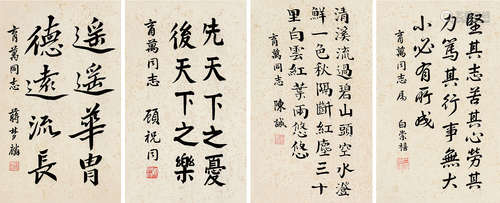 堅其志苦其心勞其
力篤其行事無大
小必有所成
育萬同志属 白崇禧
清溪流過碧山頭空水澄
鮮一色秋隔斷紅塵三十
里白雲紅葉兩悠悠
育萬同志 陳誠
先天下之憂
後天下之樂
育萬同志 顧祝同
遥遥華胄
德遠流長
育萬同志 蔣夢麟